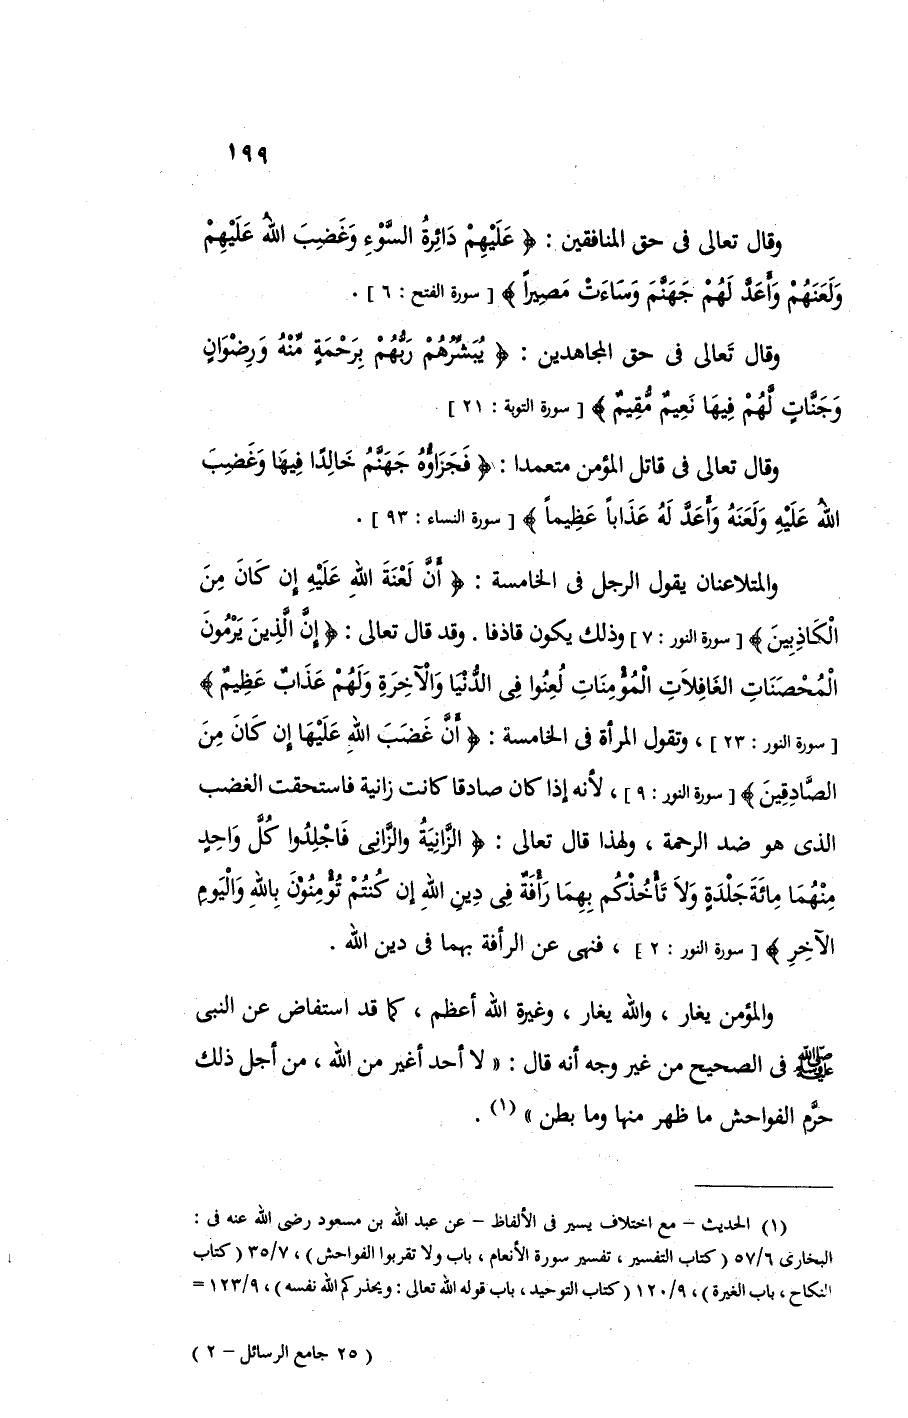 ١٩٩
وقال تعالى فى حق المنافقين : ﴿ عَلَيْهِمْ دَائِرةُ السَّوْءِ وَغَضِبَ اللهُ عَلَيْهِمْ
وَلَعَنَهُمْ وَأَعَدَّ لَهُمْ جَهَنَّمَ وَسَاءَتْ مَصِيراً ﴾ [ سورة الفتح : ٦ ] .
وقال تَعالى فى حق المجاهدين : ﴿ يُبَشِّرُهُمْ رَبُّهُمْ بِرَحْمَةٍ مِّنْهُ وَرِضْوَانٍ
وَجَنَّاتٍ لَّهُمْ فِيهَا نَعِيمٌ مُّقِيمٌ ﴾ [ سورة التوبة : ٢١ ]
وقال تعالى فى قاتل المؤمن متعمدا : ﴿ فَجَزَاؤُهُ جَهَنَّمُ خَالِدًا فِيهَا وَغَضِبَ
اللهُ عَلَيْهِ وَلَعَنَهُ وَأَعَدَّ لَهُ عَذَاباً عَظِيماً ﴾ [ سورة النساء : ٩٣ ] .
والمتلاعنان يقول الرجل فى الخامسة : ﴿ أَنَّ لَعْنَةَ اللهِ عَلَيْهِ إِن كَانَ مِنَ
الْكَاذِبِينَ ﴾ [ سورة النور : ٧ ] وذلك يكون قاذفا . وقد قال تعالى : ﴿ إِنَّ الَّذِينَ يَرْمُونَ
الْمُحْصَنَاتِ الغَافِلاَتِ الْمُؤْمِنَاتِ لُعِنُوا فِى الدُّنْيَا وَالْآخِرَةِ وَلَهُمْ عَذَابٌ عَظِيمٌ ﴾
[ سورة النور : ٢٣ ] ، وتقول المرأة فى الخامسة : ﴿ أَنَّ غَضَبَ اللهِ عَلَيْهَا إِن كَانَ مِنَ
الصَّادِقِينَ ﴾ [ سورة النور : ٩ ] ، لأنه إذا كان صادقا كانت زانية فاستحقت الغضب
الذى هو ضد الرحمة ، ولهذا قال تعالى : ﴿ الزَّانِيَةُ والزَّانِى فَاجْلِدُوا كُلَّ وَاحِدٍ
مِنْهُمَا مِائَةَ جَلْدَةٍ وَلاَ تَأْخُذْكُم بِهِمَا رَأْفَةٌ فِى دِينِ اللهِ إِن كُنتُمْ تُؤْمِنُوْنَ بِاللهِ وَالْيَومِ
الآخِرِ ﴾ [ سورة النور : ٢ ] ، فنهى عن الرأفة بهما فى دين الله .
والمؤمن يغار ، والله يغار ، وغيرة الله أعظم ، كما قد استفاض عن النبى
ﷺ فى الصحيح من غير وجه أنه قال : « لا أحد أغير من الله ، من أجل ذلك
حرَّم الفواحش ما ظهر منها وما بطن » (١) .
(١) الحديث – مع اختلاف يسير فى الألفاظ – عن عبد الله بن مسعود رضى الله عنه فى :
البخارى ٥٧/٦ ( كتاب التفسير ، تفسير سورة الأنعام ، باب ولا تقربوا الفواحش ) ، ٣٥/٧ ( كتاب
النكاح ، باب الغيرة ) ، ١٢٠/٩ ( كتاب التوحيد ، باب قوله الله تعالى : ويحذركم الله نفسه ) ، ١٢٣/٩ =
( ٢٥ جامع الرسائل – ٢ )